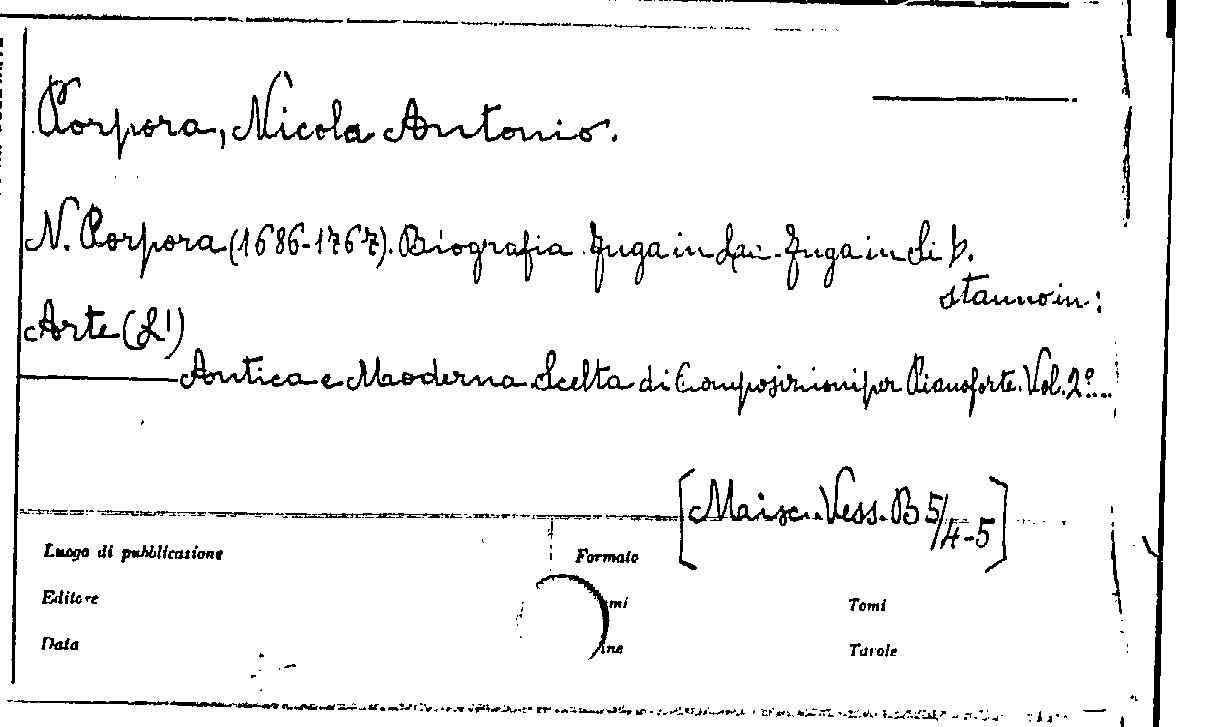 Porpora, Nicola Antonio.
N. Porpora (1686-1767). Biografia. Fuga in La-. Fuga in Si b.
stanno in:
Arte (L')
Antica e Moderna. Scelta di Composizioni per Pianoforte. Vol. 2º...
[Misc. Vess. B 5/4-5]
Luogo di pubblicazione Formato
Editore Tomi
Data Tavole